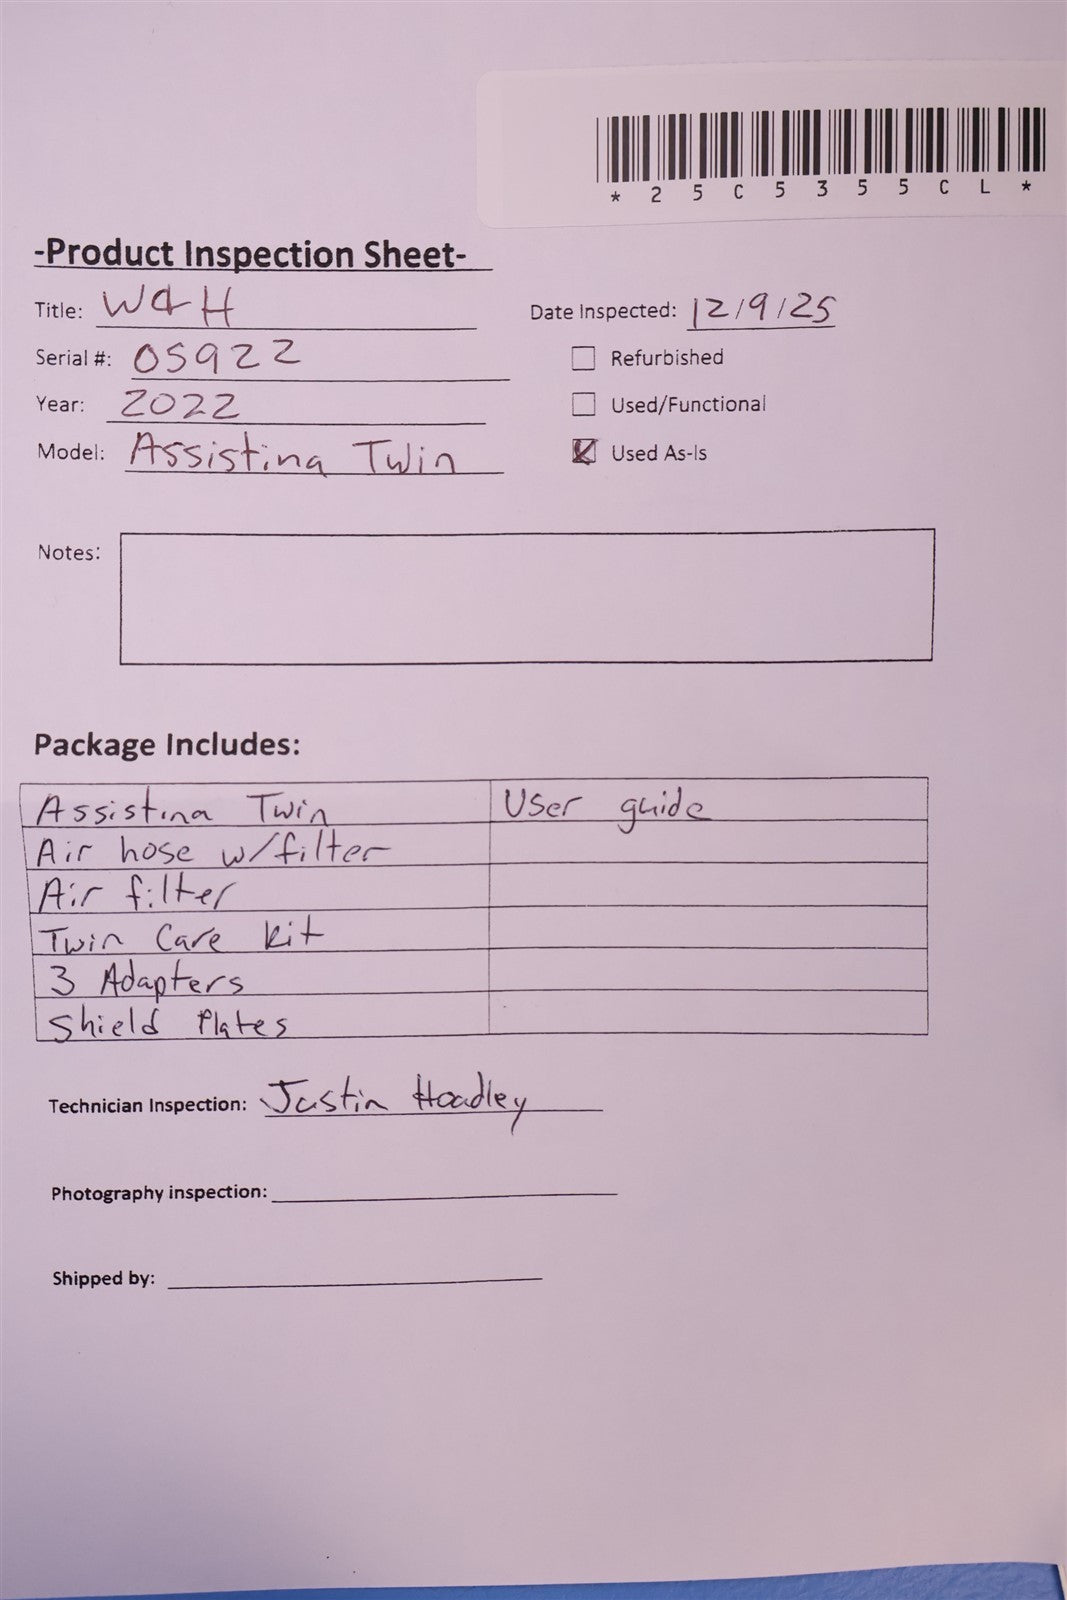 * 2 5 C 5 3 5 5 C L *
-Product Inspection Sheet-
Title: W&H
Date Inspected: 12/9/25
Serial #: 05922
Refurbished
Year: 2022
Used/Functional
Model: Assistina Twin
Used As-Is
Notes:
Package Includes:
Assistina Twin
User guide
Air hose w/filter
Air filter
Twin Care kit
3 Adapters
Shield Plates
Technician Inspection: Justin Hoadley
Photography inspection:
Shipped by: